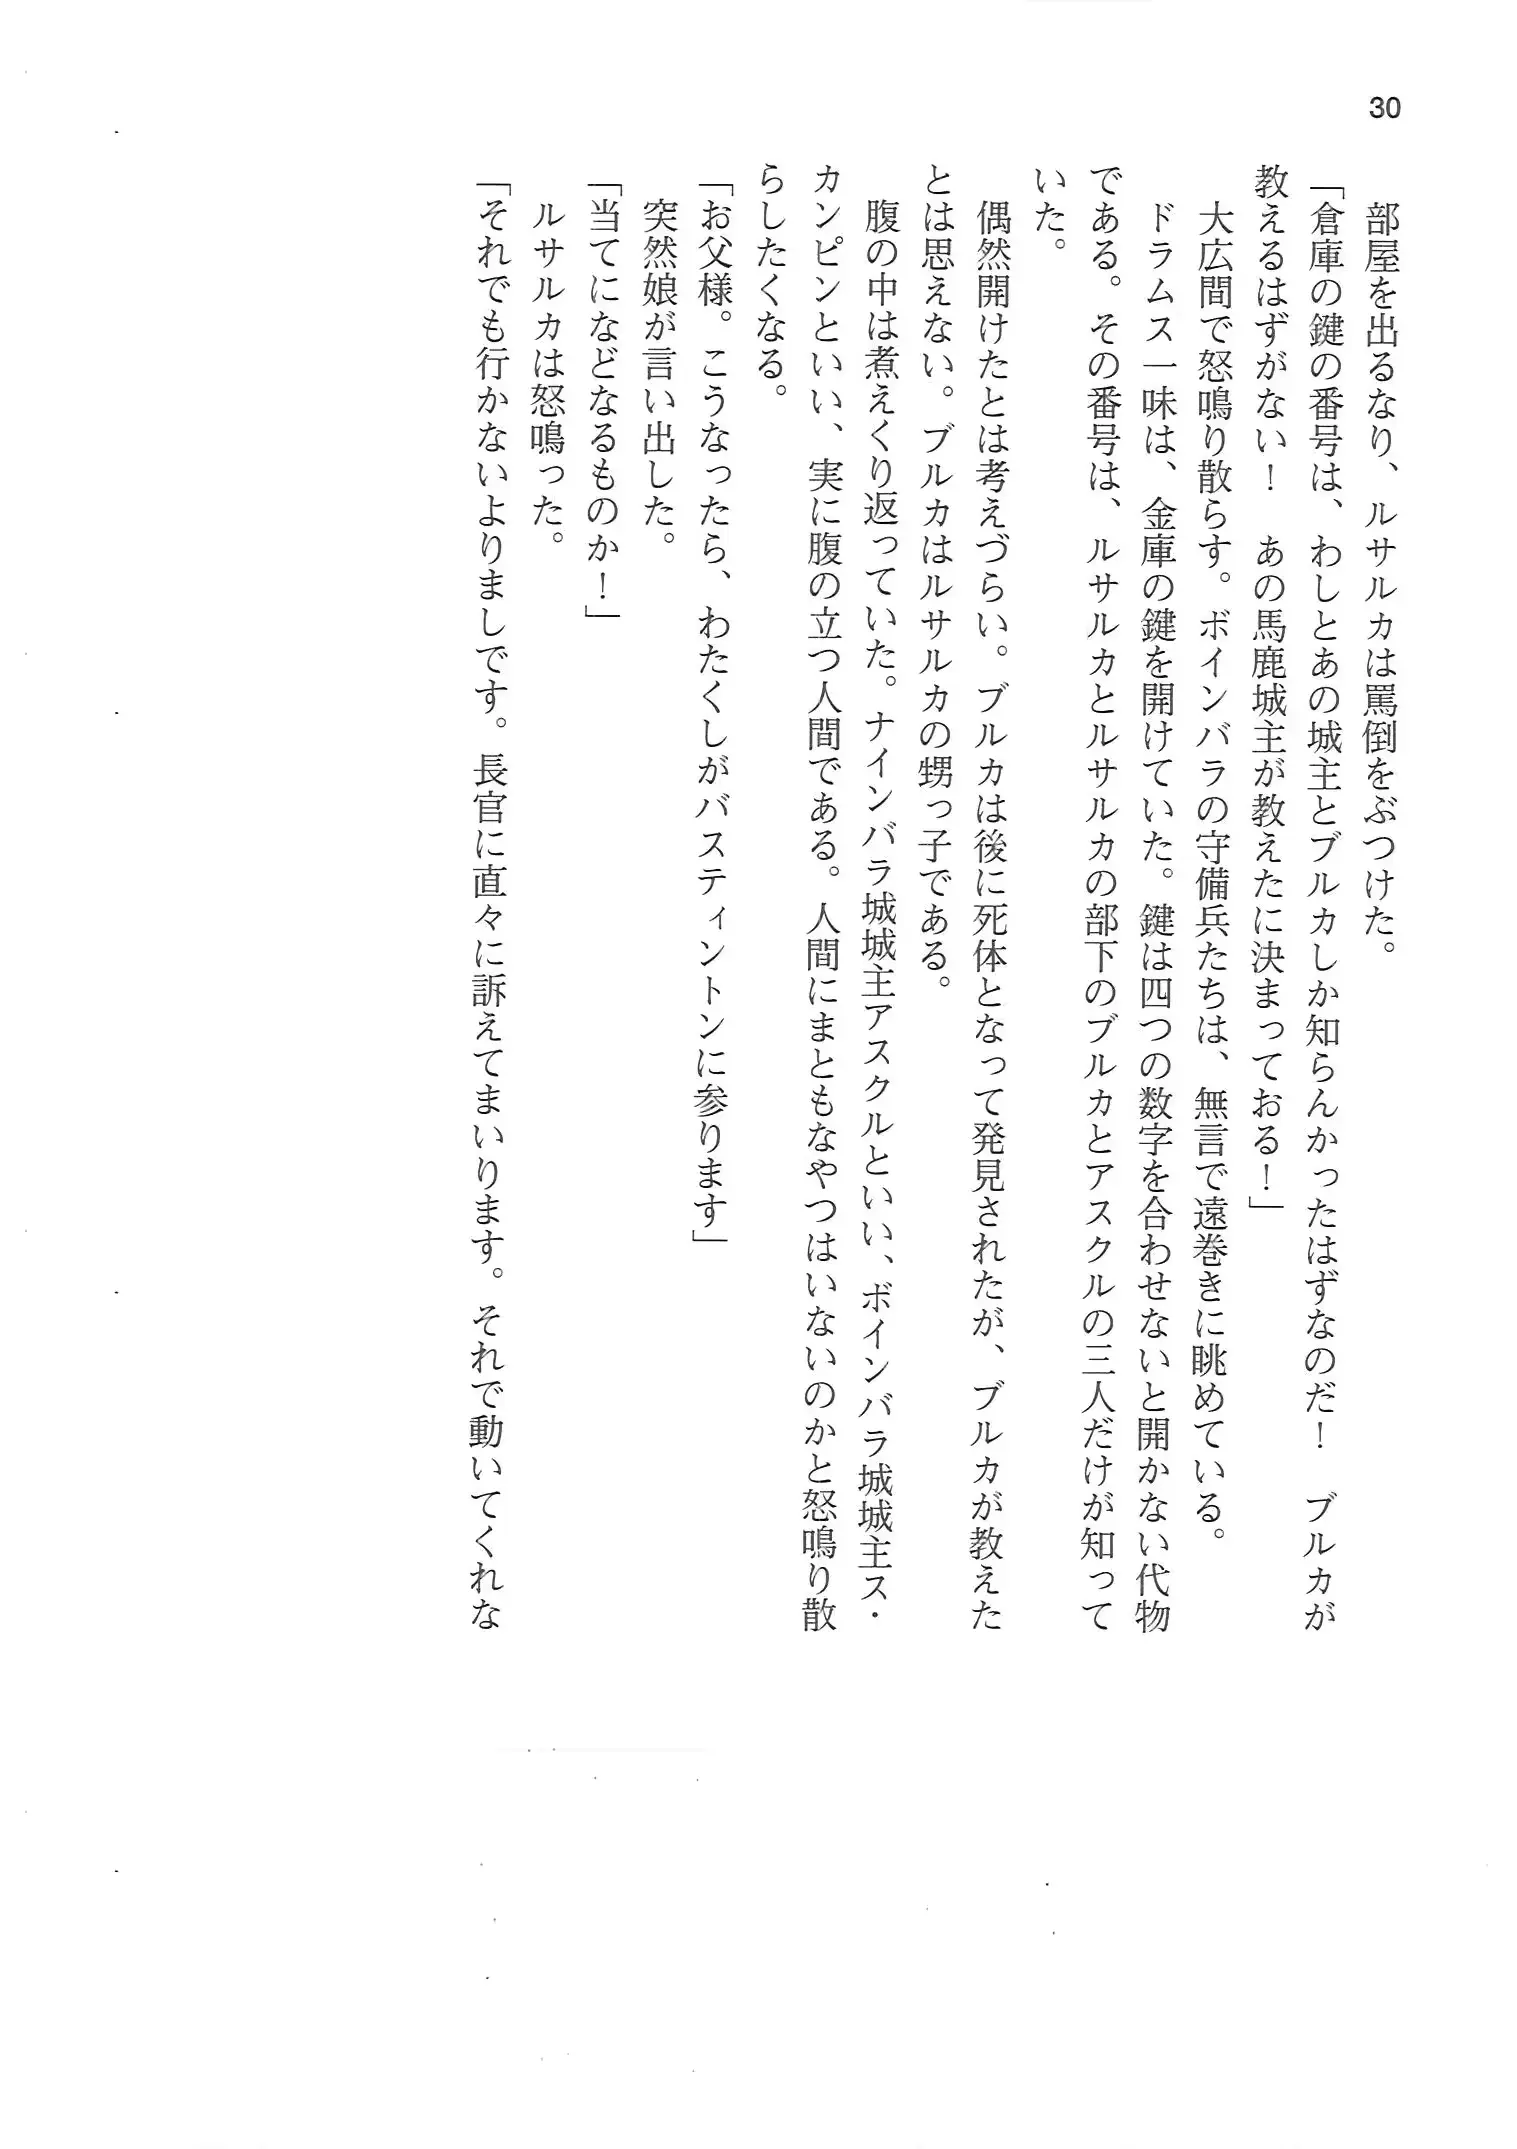 30
　部屋を出るなり、ルサルカは罵倒をぶつけた。
「倉庫の鍵の番号は、わしとあの城主とブルカしか知らんかったはずなのだ！　ブルカが
教えるはずがない！　あの馬鹿城主が教えたに決まっておる！」
　大広間で怒鳴り散らす。ボインバラの守備兵たちは、無言で遠巻きに眺めている。
　ドラムス一味は、金庫の鍵を開けていた。鍵は四つの数字を合わせないと開かない代物
である。その番号は、ルサルカとルサルカの部下のブルカとアスクルの三人だけが知って
いた。
　偶然開けたとは考えづらい。ブルカは後に死体となって発見されたが、ブルカが教えた
とは思えない。ブルカはルサルカの甥っ子である。
　腹の中は煮えくり返っていた。ナインバラ城城主アスクルといい、ボインバラ城城主ス・
カンピンといい、実に腹の立つ人間である。人間にまともなやつはいないのかと怒鳴り散
らしたくなる。
「お父様。こうなったら、わたくしがバスティントンに参ります」
　突然娘が言い出した。
「当てになどなるものか！」
　ルサルカは怒鳴った。
「それでも行かないよりましです。長官に直々に訴えてまいります。それで動いてくれな